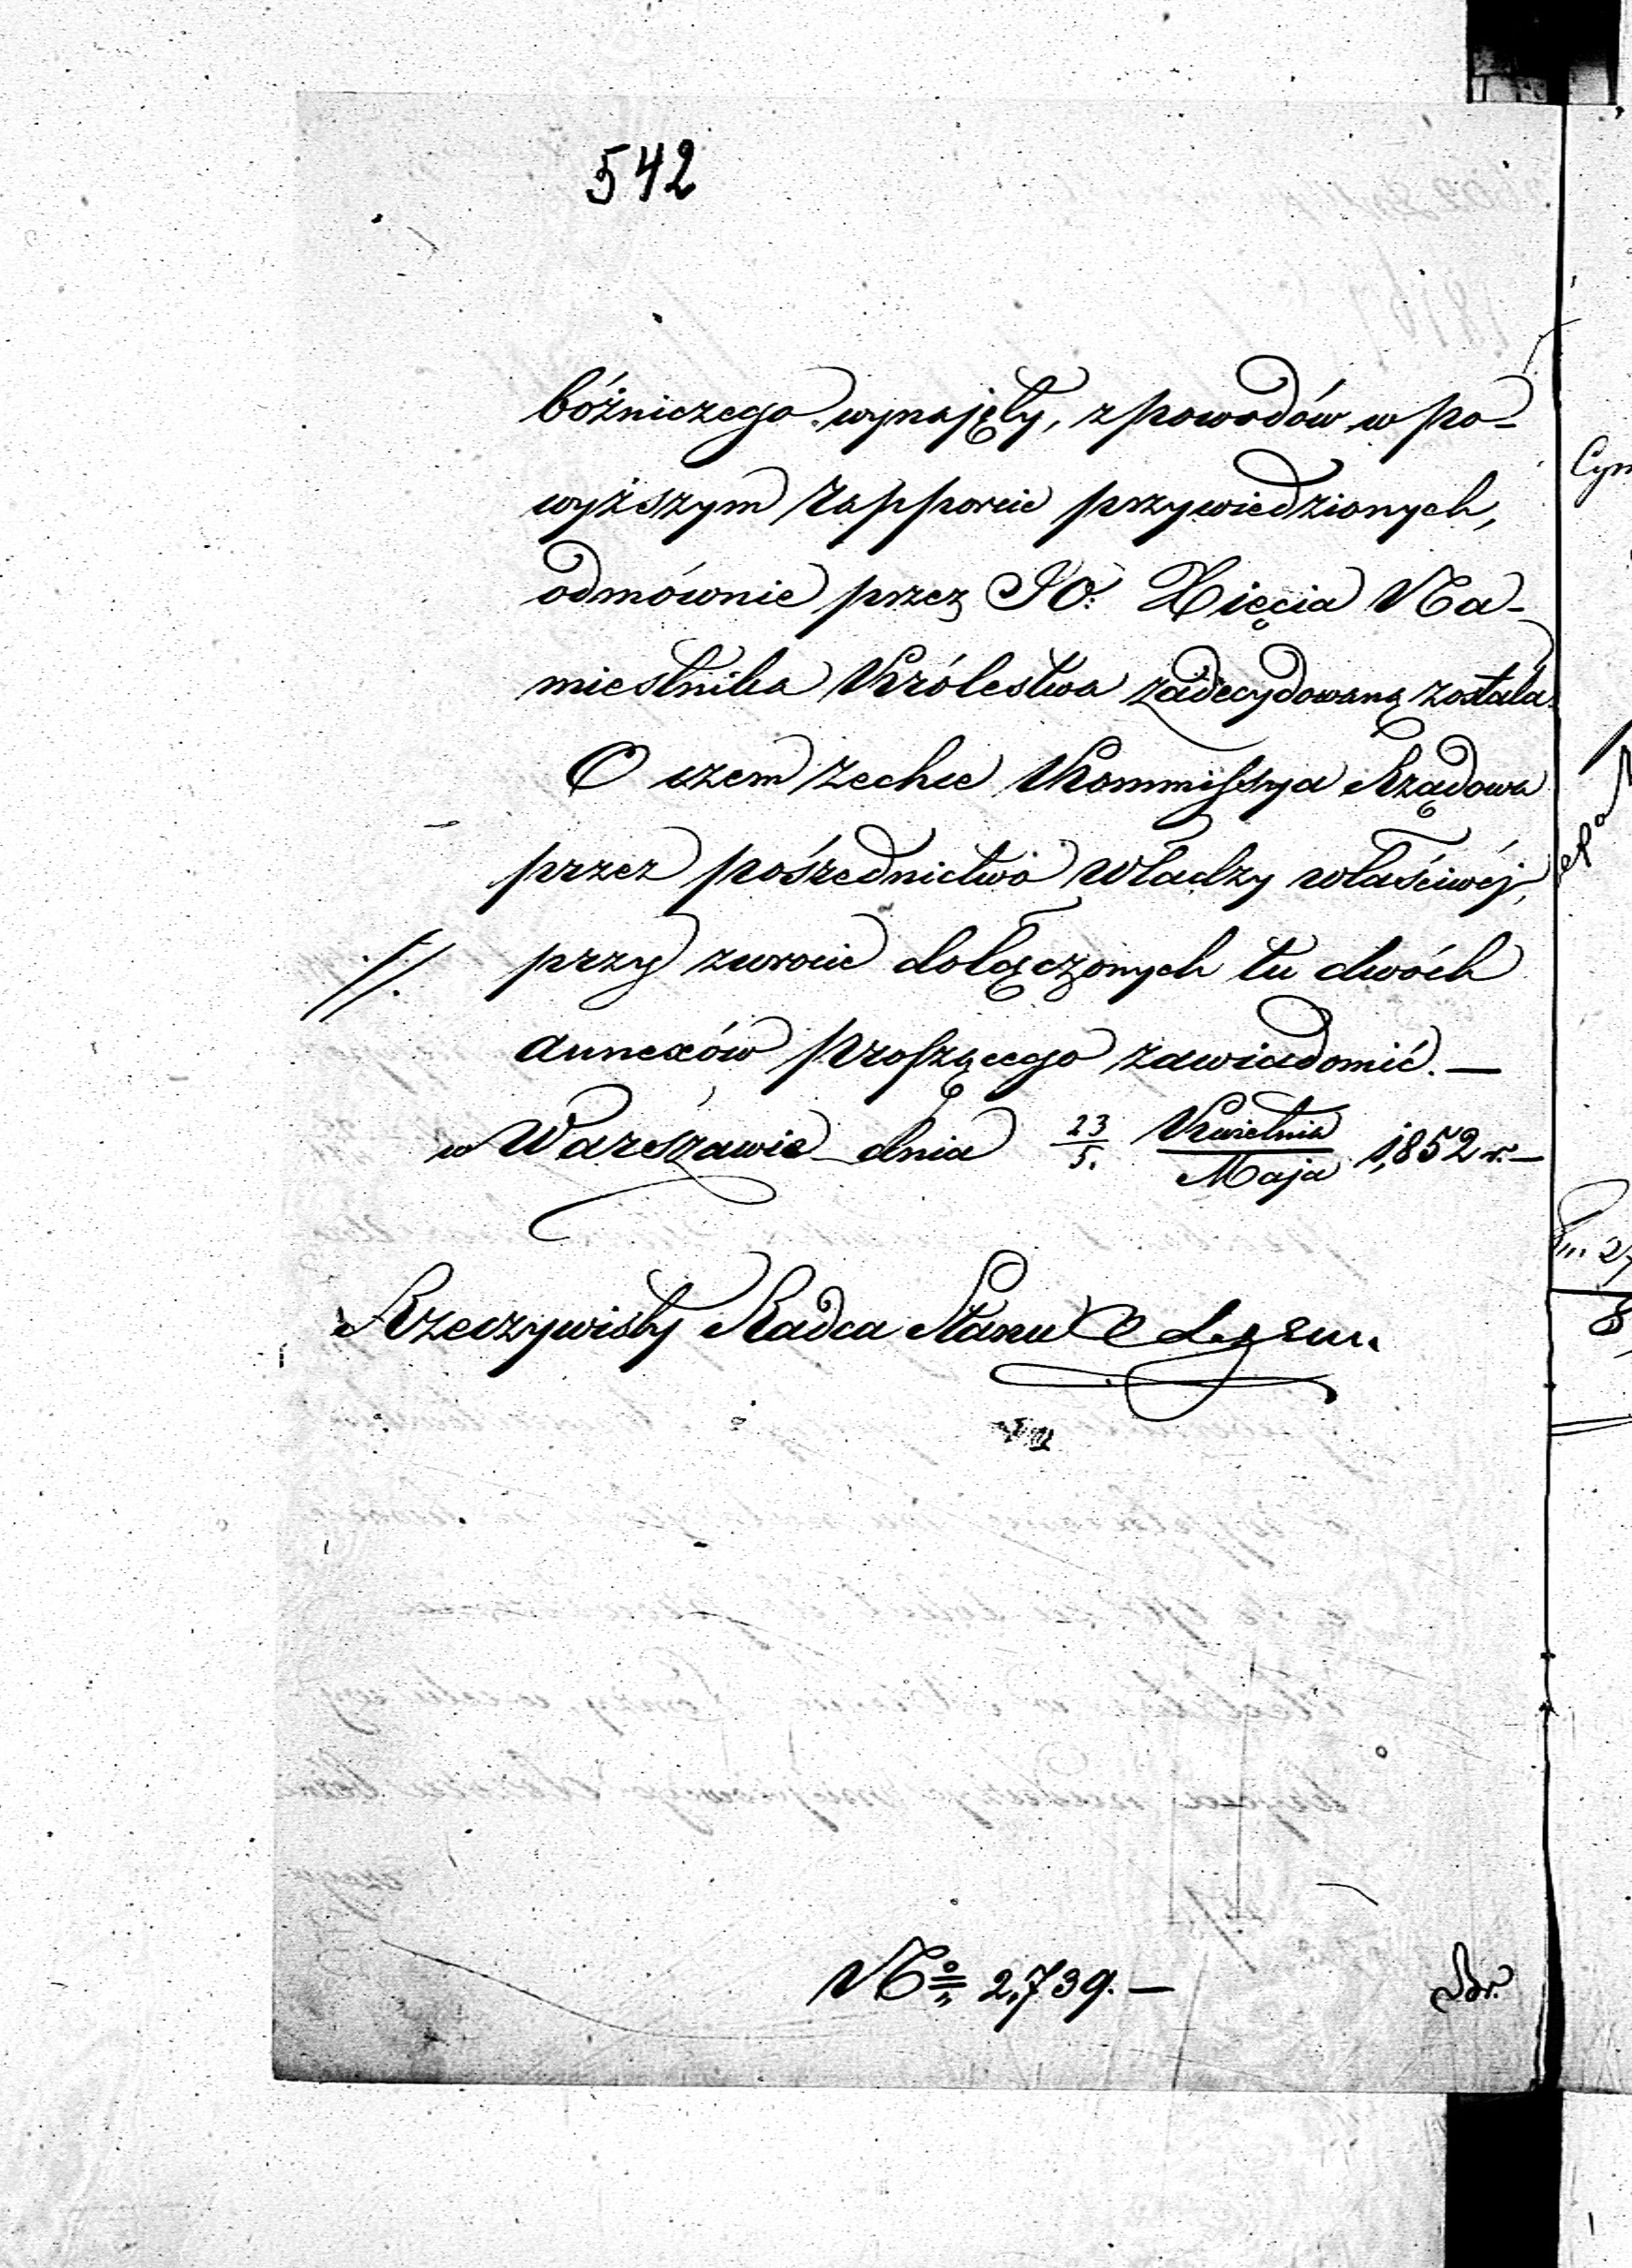 542
bóżniczego wynajęty, z powodów w po-
wyższym rapporcie przywiedzionych,
odmównie przez JO: Xięcia Na-
miestnika Królestwa zadecydowaną została.
O czem zechce Kommissya Rządowa
przez pośrednictwo Władzy właściwéj,
//. przy zwrocie dołączonych tu dwóch
annexów proszącego zawiadomić. —
w Warszawie dnia 23/5. Kwietnia/Maja 1,852 r. —
Rzeczywisty Radca Stanu
No 2,739. —